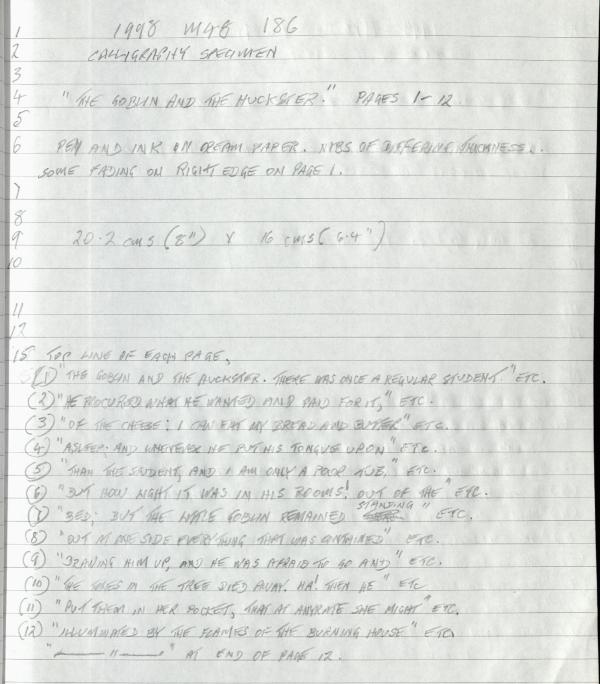 1 1998 MGB 186
2 CALLIGRAPHY SPECIMEN
3
4 "THE GOBLIN AND THE HUCKSTER." PAGES 1-12
5
6 PEN AND INK ON CREAM PAPER. NIBS OF DIFFERING THICKNESS.
SOME FADING ON RIGHT EDGE ON PAGE 1.
7
8
9 20.2 cms (8") x 16 cms (6.4")
10
11
12
15 TOP LINE OF EACH PAGE,
(1) "THE GOBLIN AND THE HUCKSTER. THERE WAS ONCE A REGULAR STUDENT." ETC.
(2) "HE PROCURED WHAT HE WANTED AND PAID FOR IT," ETC.
(3) "OF THE CHEESE; I CAN EAT MY BREAD AND BUTTER" ETC.
(4) "ASLEEP. AND WHEREVER HE PUT HIS TONGUE UPON" ETC.
(5) "THAN THE STUDENT, AND I AM ONLY A POOR TUB." ETC.
(6) "BUT HOW LIGHT IT WAS IN HIS ROOMS! OUT OF THE" ETC.
(7) "BED; BUT THE LITTLE GOBLIN REMAINED STANDING" ETC.
(8) "OUT AT ONE SIDE EVERYTHING THAT WAS CONTAINED" ETC.
(9) "DRAWING HIM UP, AND HE WAS AFRAID TO GO AND" ETC.
(10) "THE IN THE TREE DIED AWAY. HA! THEN HE" ETC
(11) "PUT THEM IN HER POCKET, THAT AT ANYRATE SHE MIGHT" ETC.
(12) "ILLUMINATED BY THE FLAMES OF THE BURNING HOUSE" ETC.
"——— " ———" AT END OF PAGE 12.